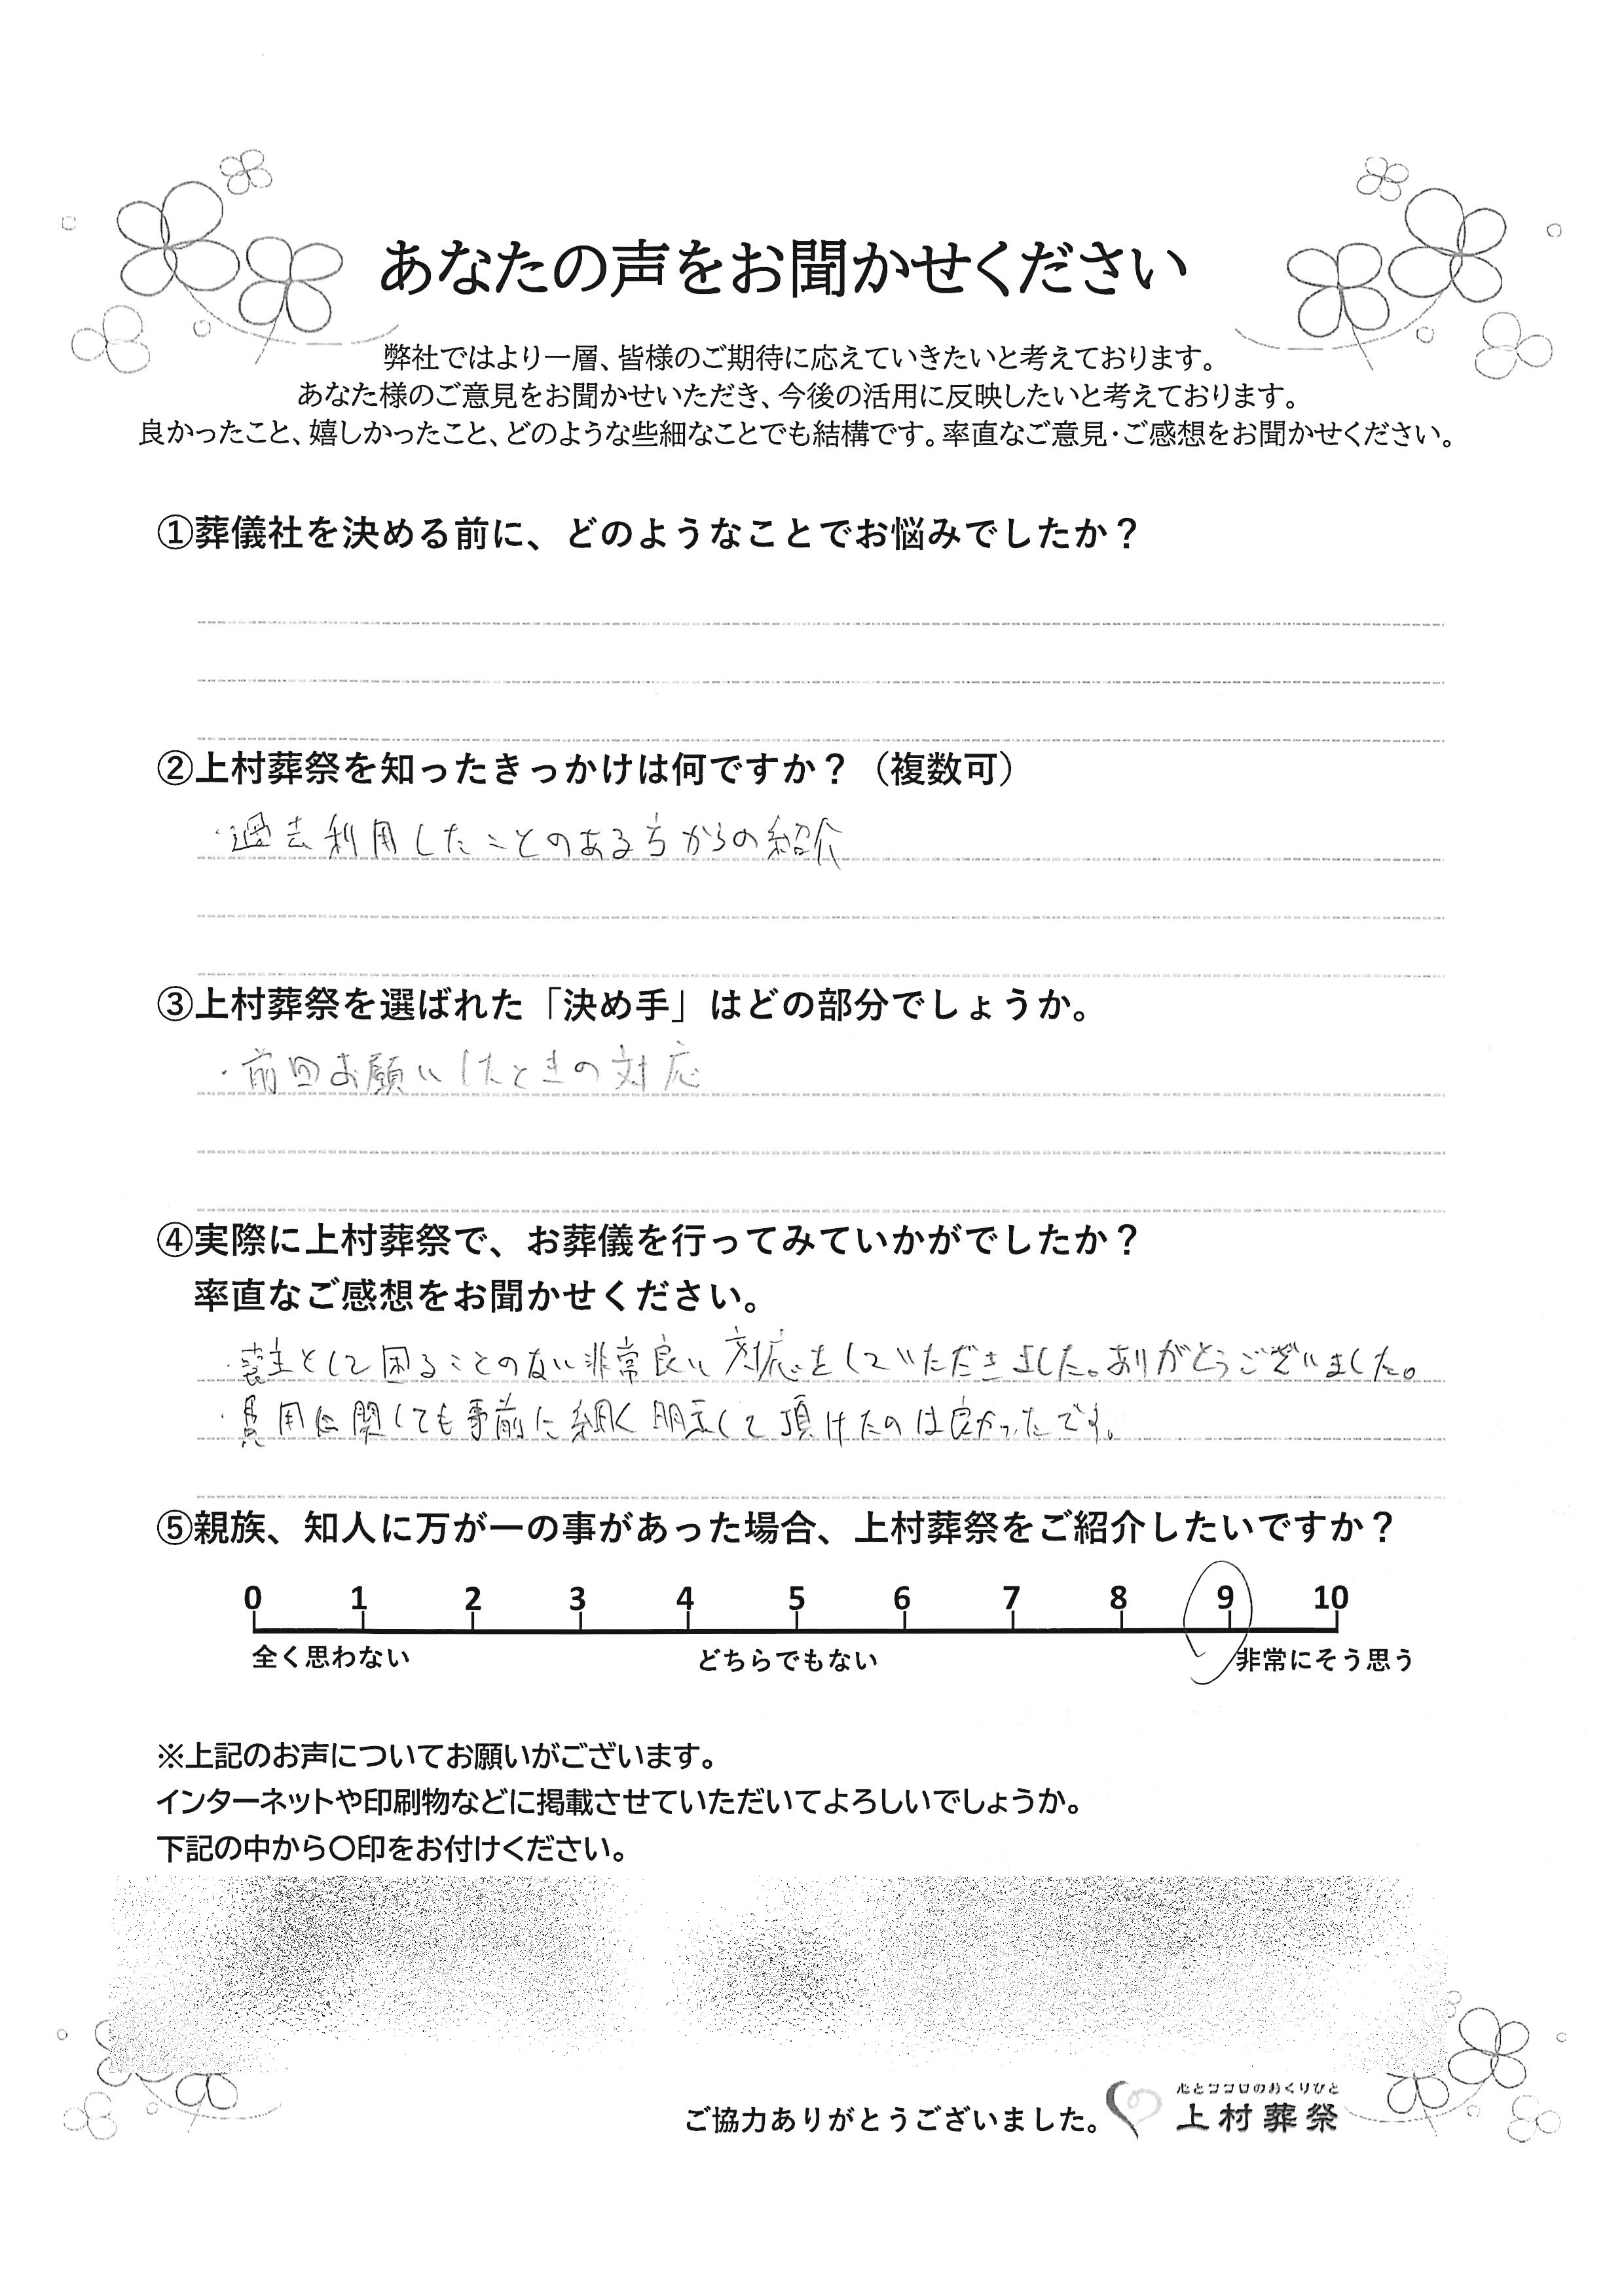 あなたの声をお聞かせください
弊社ではより一層、皆様のご期待に応えていきたいと考えております。
あなた様のご意見をお聞かせいただき、今後の活用に反映したいと考えております。
良かったこと、嬉しかったこと、どのような些細なことでも結構です。率直なご意見・ご感想をお聞かせください。
①葬儀社を決める前に、どのようなことでお悩みでしたか？
②上村葬祭を知ったきっかけは何ですか？（複数可）
・過去利用したことのある方からの紹介
③上村葬祭を選ばれた「決め手」はどの部分でしょうか。
・前回お願いしたときの対応
④実際に上村葬祭で、お葬儀を行ってみていかがでしたか？
率直なご感想をお聞かせください。
・喪主として困ることのない非常良い対応をしていただきました。ありがとうございました。
・費用に関しても事前に細く明示して頂けたのは良かったです。
⑤親族、知人に万が一の事があった場合、上村葬祭をご紹介したいですか？
0 1 2 3 4 5 6 7 8 9 10
全く思わない どちらでもない 非常にそう思う
※上記のお声についてお願いがございます。
インターネットや印刷物などに掲載させていただいてよろしいでしょうか。
下記の中から〇印をお付けください。
心とココロのおくりびと
ご協力ありがとうございました。 上村葬祭